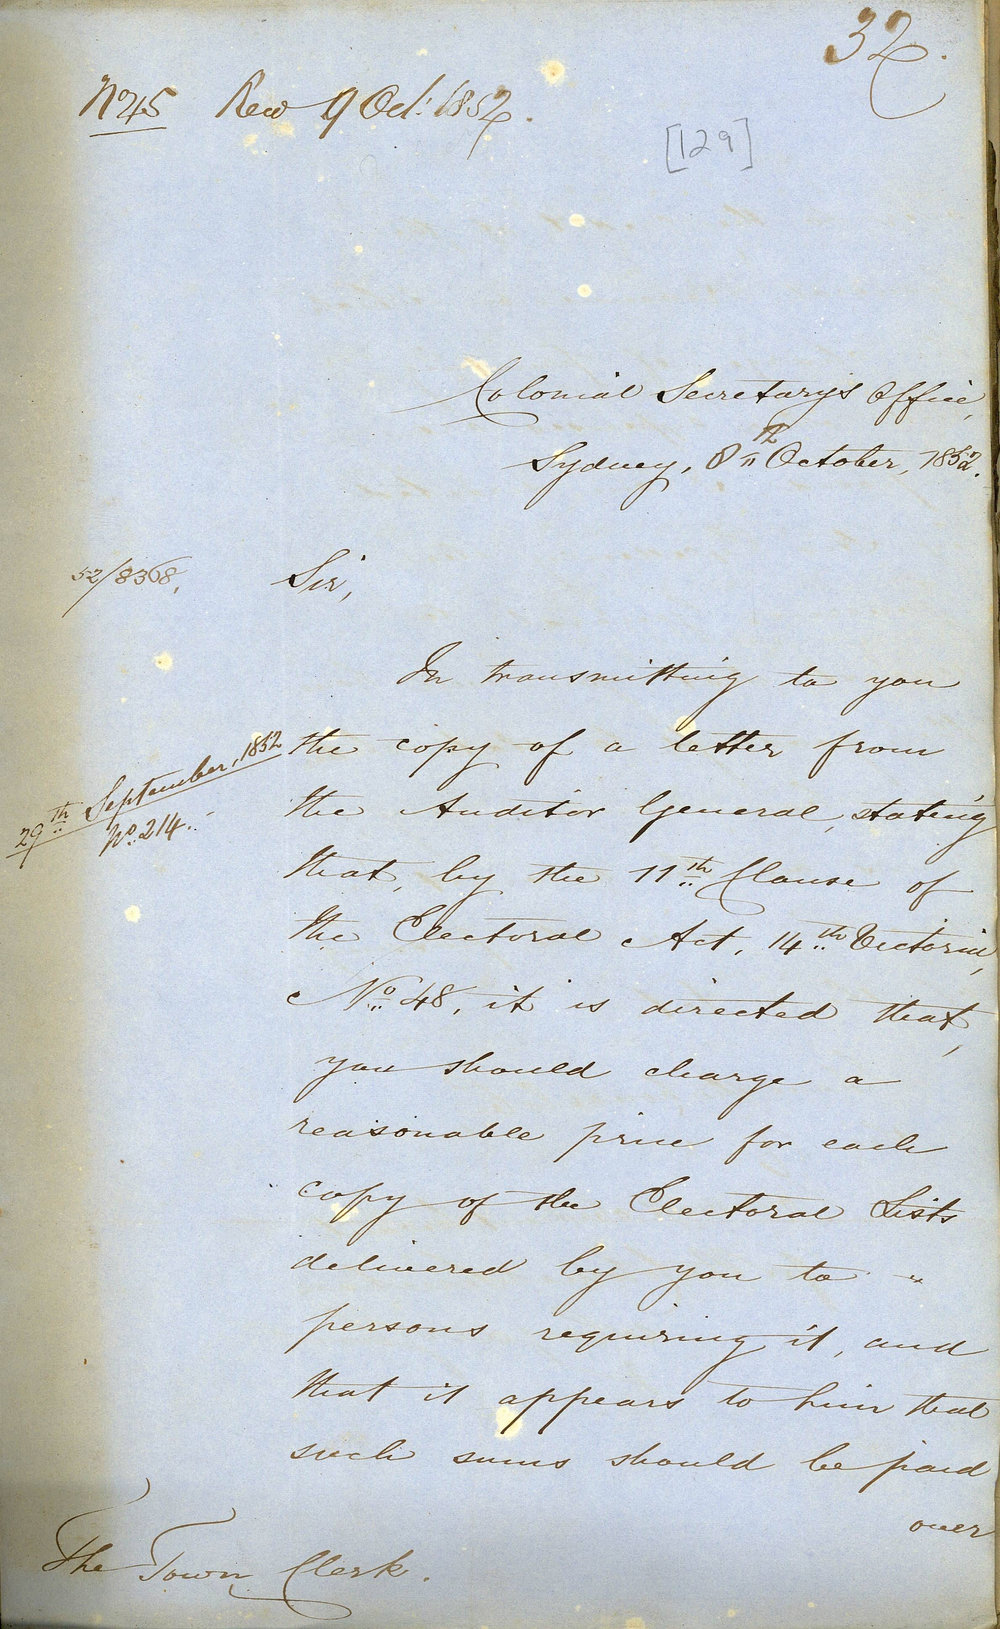 32.
No 45 Recd 9 Oct: 1852.
[129]
Colonial Secretary's Office,
Sydney, 8th October, 1852.
52/8368.
Sir,
In transmitting to you
the copy of a letter from
29th September, 1852
No. 214.
the Auditor General, stating
that, by the 11th Clause of
the Electoral Act, 14th Victoria,
No. 48, it is directed that,
you should charge a
reasonable price for each
copy of the Electoral Lists
delivered by you to "
persons requiring it, and
that it appears to him that
such sums should be paid
over
The Town Clerk.